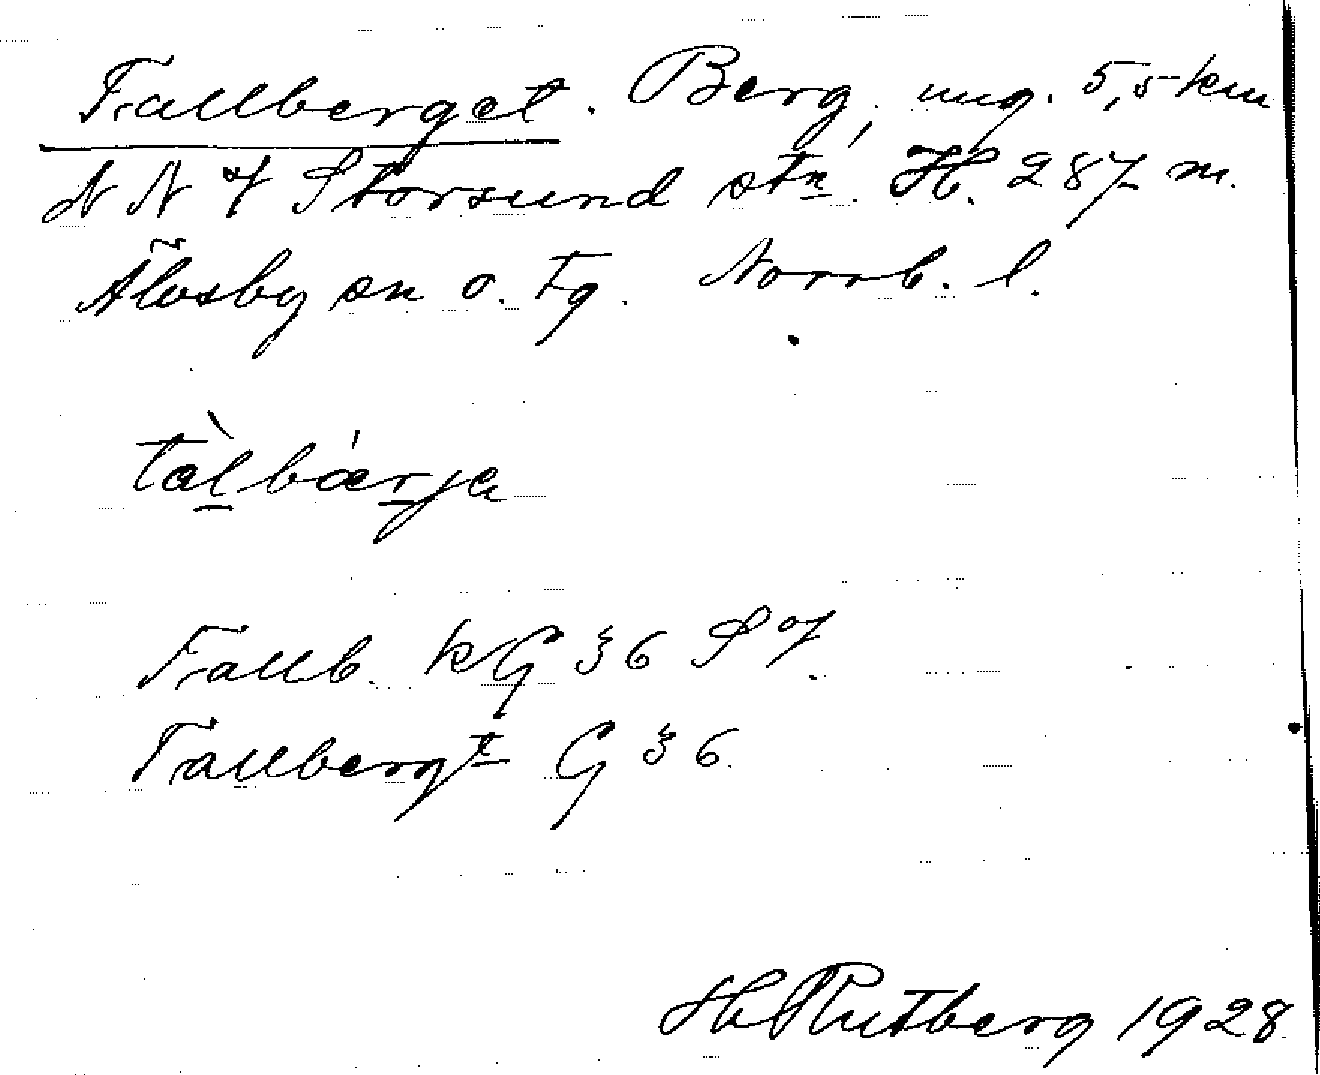 Tallberget. Berg, ung. 5,5 km
N N V Storsund stn. H. 287 m.
Älvsby sn o. tg. Norrb. l.
tàlbǽrja
Tallb. kG 36 SV.
Tallbergt G 36.
H Rutberg 1928